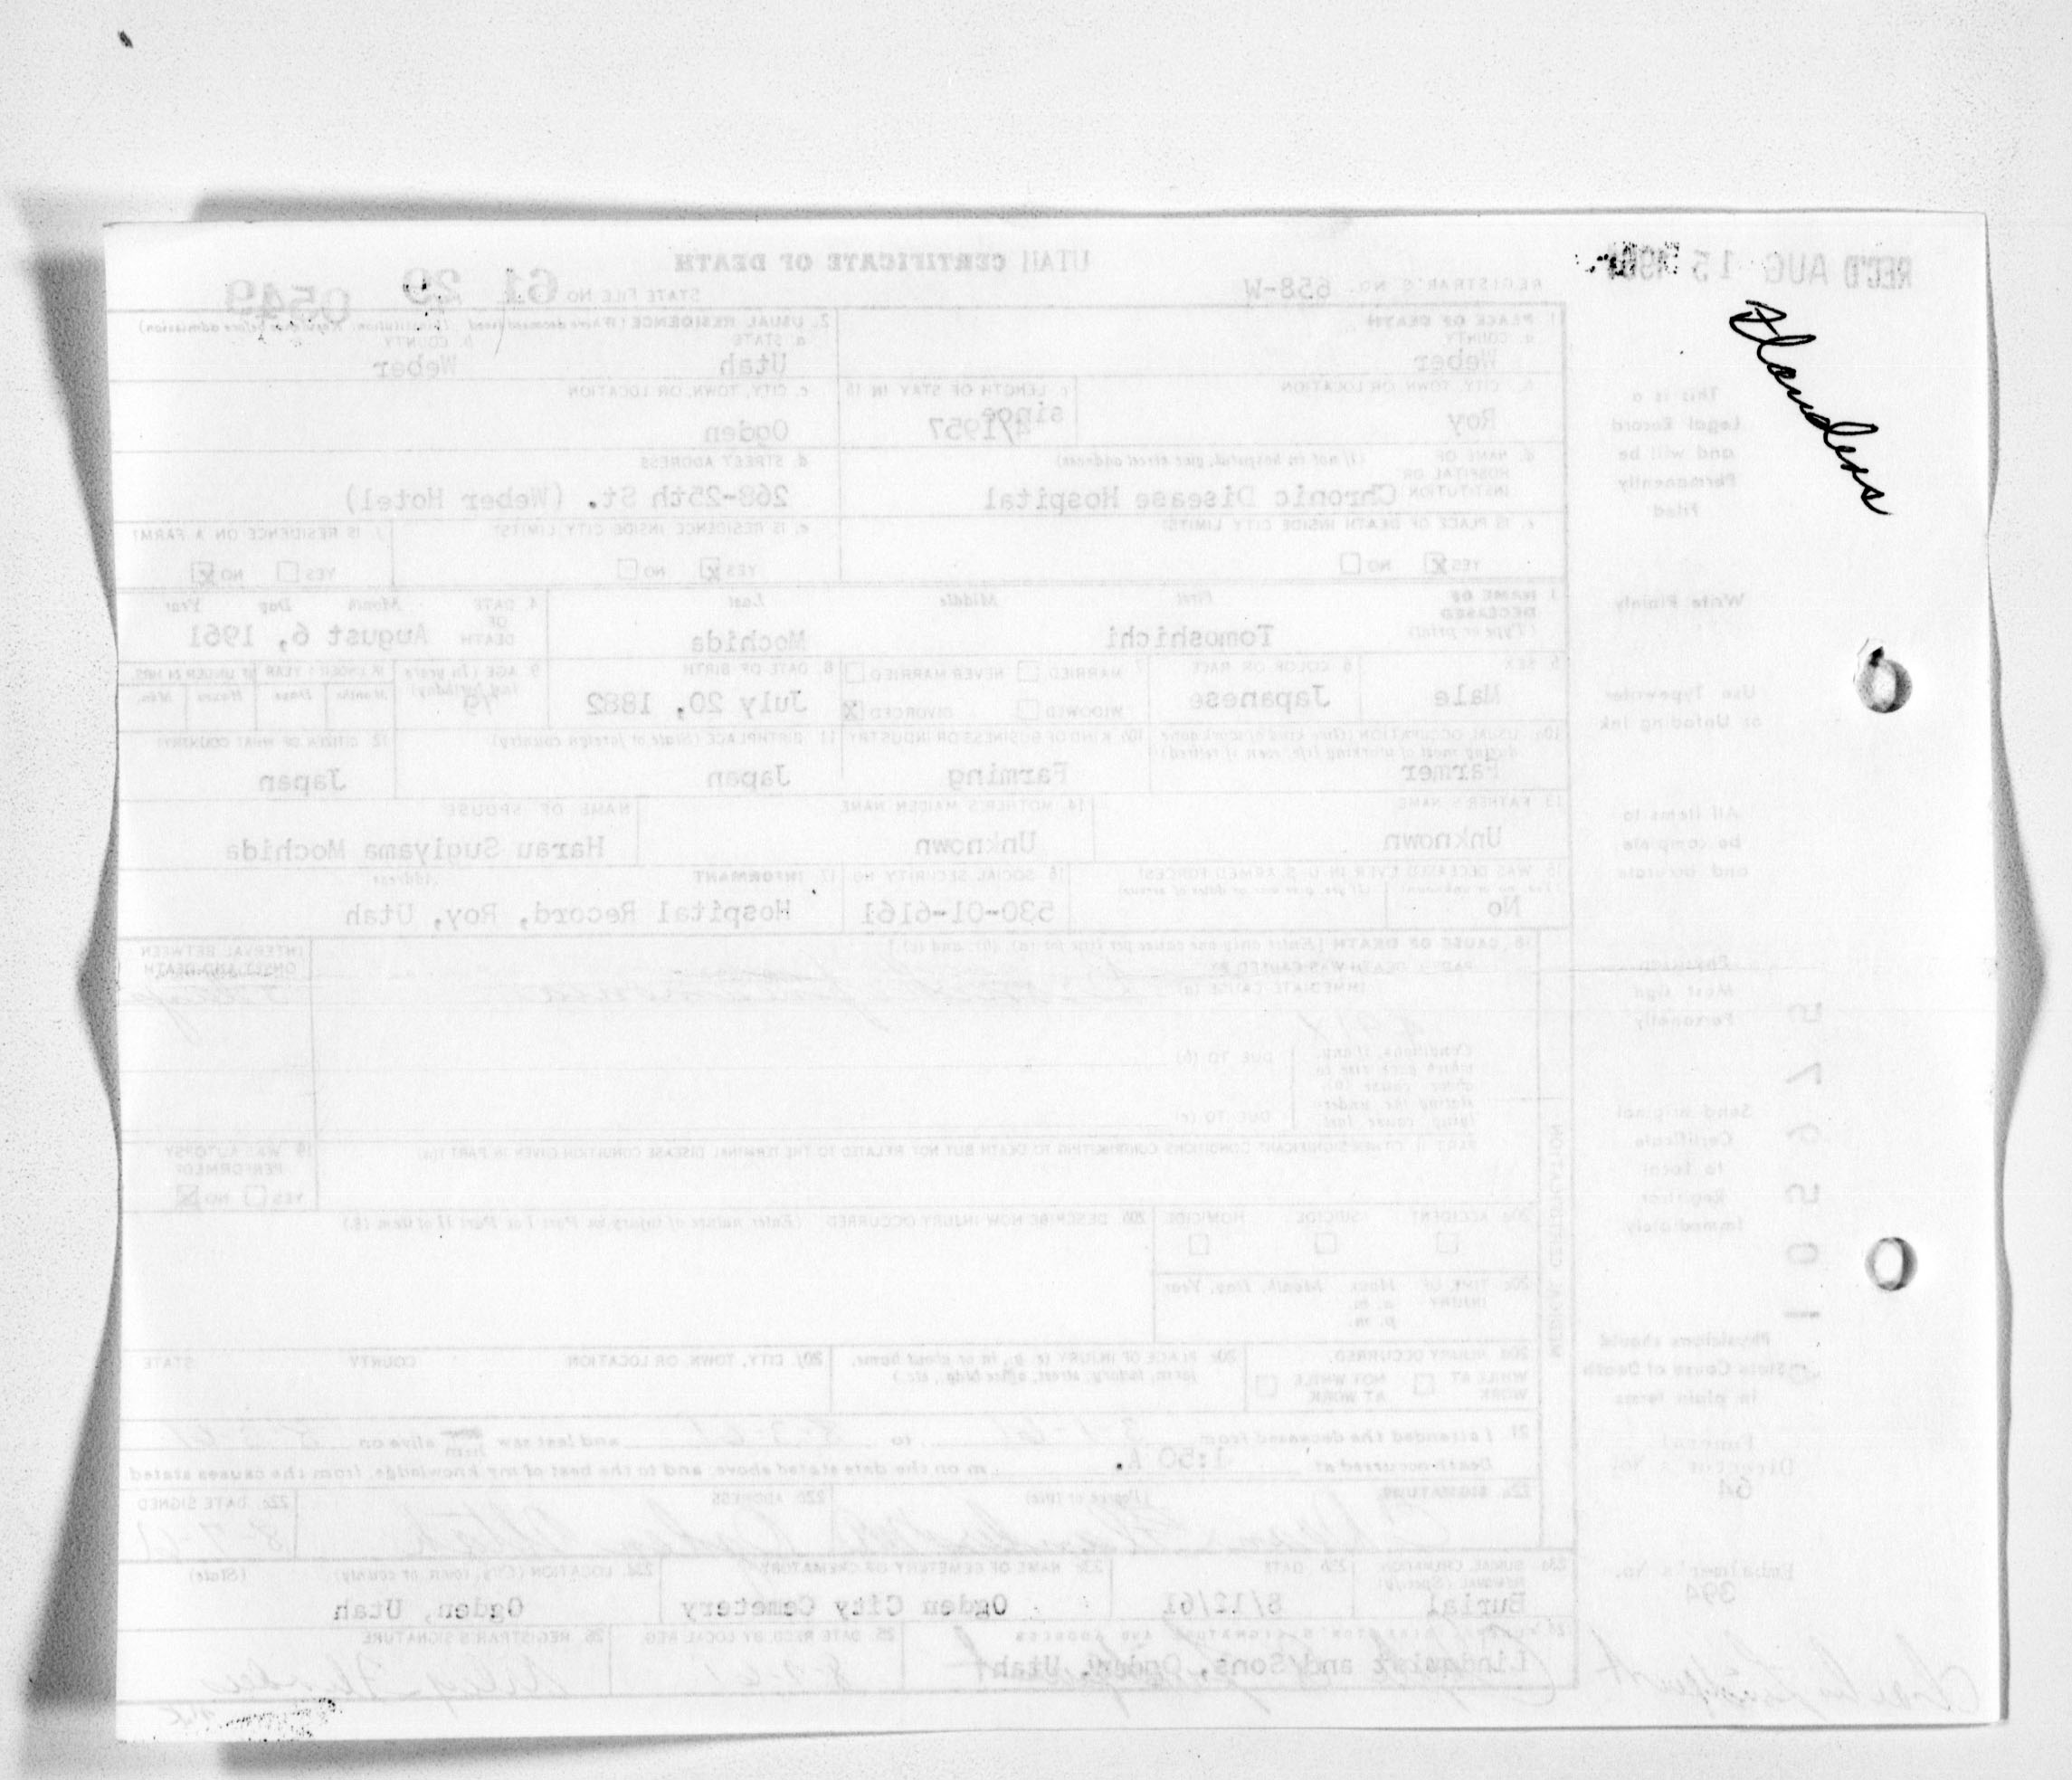 Flanders
REC'D AUG 15 1961
UTAH CERTIFICATE OF DEATH
REGISTRAR'S NO. 658-W
STATE FILE NO. 61 29 0549
1. PLACE OF DEATH
a. COUNTY
Weber
2. USUAL RESIDENCE (Where deceased lived. Institution: Residence before admission)
a. STATE
Utah
b. COUNTY
Weber
b. CITY, TOWN, OR LOCATION
Roy
c. LENGTH OF STAY IN 1b
since
4/1957
c. CITY, TOWN, OR LOCATION
Ogden
d. NAME OF HOSPITAL OR INSTITUTION (If not in hospital, give street address)
Chronic Disease Hospital
d. STREET ADDRESS
268-25th St. (Weber Hotel)
e. IS PLACE OF DEATH INSIDE CITY LIMITS?
YES X NO
e. IS RESIDENCE INSIDE CITY LIMITS?
YES X NO
f. IS RESIDENCE ON A FARM?
YES NO X
3. NAME OF DECEASED (Type or print)
First Middle Last
Tomoshichi Mochida
4. DATE OF DEATH Month Day Year
August 6, 1961
5. SEX
Male
6. COLOR OR RACE
Japanese
7. MARRIED NEVER MARRIED
WIDOWED DIVORCED X
8. DATE OF BIRTH
July 20, 1882
9. AGE (In years last birthday)
79
IF UNDER 1 YEAR IF UNDER 24 HRS.
Months Days Hours Min.
10a. USUAL OCCUPATION (Give kind of work done during most of working life, even if retired)
Farmer
10b. KIND OF BUSINESS OR INDUSTRY
Farming
11. BIRTHPLACE (State or foreign country)
Japan
12. CITIZEN OF WHAT COUNTRY?
Japan
13. FATHER'S NAME
Unknown
14. MOTHER'S MAIDEN NAME
Unknown
NAME OF SPOUSE
Harau Sugiyama Mochida
15. WAS DECEASED EVER IN U.S. ARMED FORCES?
(Yes, no, or unknown) (If yes, give war or dates of service)
No
16. SOCIAL SECURITY NO.
530-01-6161
17. INFORMANT Address
Hospital Record, Roy, Utah
18. CAUSE OF DEATH [Enter only one cause per line for (a), (b), and (c).]
PART I. DEATH WAS CAUSED BY:
IMMEDIATE CAUSE (a)
INTERVAL BETWEEN ONSET AND DEATH
Conditions, if any, which gave rise to above cause (a), stating the underlying cause last.
DUE TO (b)
DUE TO (c)
PART II. OTHER SIGNIFICANT CONDITIONS CONTRIBUTING TO DEATH BUT NOT RELATED TO THE TERMINAL DISEASE CONDITION GIVEN IN PART I(a)
19. WAS AUTOPSY PERFORMED?
YES NO X
20a. ACCIDENT SUICIDE HOMICIDE
20b. DESCRIBE HOW INJURY OCCURRED. (Enter nature of injury in Part I or Part II of item 18.)
20c. TIME OF INJURY Hour Month, Day, Year
a. m.
p. m.
20d. INJURY OCCURRED.
WHILE AT WORK NOT WHILE AT WORK
20e. PLACE OF INJURY (e. g., in or about home, farm, factory, street, office bldg., etc.)
20f. CITY, TOWN, OR LOCATION COUNTY STATE
21. I attended the deceased from to and last saw him alive on
Death occurred at 1:50 A. m on the date stated above, and to the best of my knowledge, from the causes stated.
22a. SIGNATURE (Degree or title)
22b. ADDRESS
Ogden Utah
22c. DATE SIGNED
8-7-61
23a. BURIAL, CREMATION, REMOVAL (Specify)
Burial
23b. DATE
8/12/61
23c. NAME OF CEMETERY OR CREMATORY
Ogden City Cemetery
23d. LOCATION (City, town, or county) (State)
Ogden, Utah
24. FUNERAL DIRECTOR'S SIGNATURE AND ADDRESS
Lindquist and Sons, Ogden, Utah
25. DATE REC'D BY LOCAL REG.
26. REGISTRAR'S SIGNATURE
MEDICAL CERTIFICATION
This is a
Legal Record
and will be
Permanently
Filed
Write Plainly
Use Typewriter
or Unfading Ink
All items to
be complete
and accurate
Physician
Must sign
Personally
Send original
Certificate
to local
Registrar
Immediately
Physicians should
State Cause of Death
in plain terms
Funeral
Director's No.
64
Embalmer's No.
394